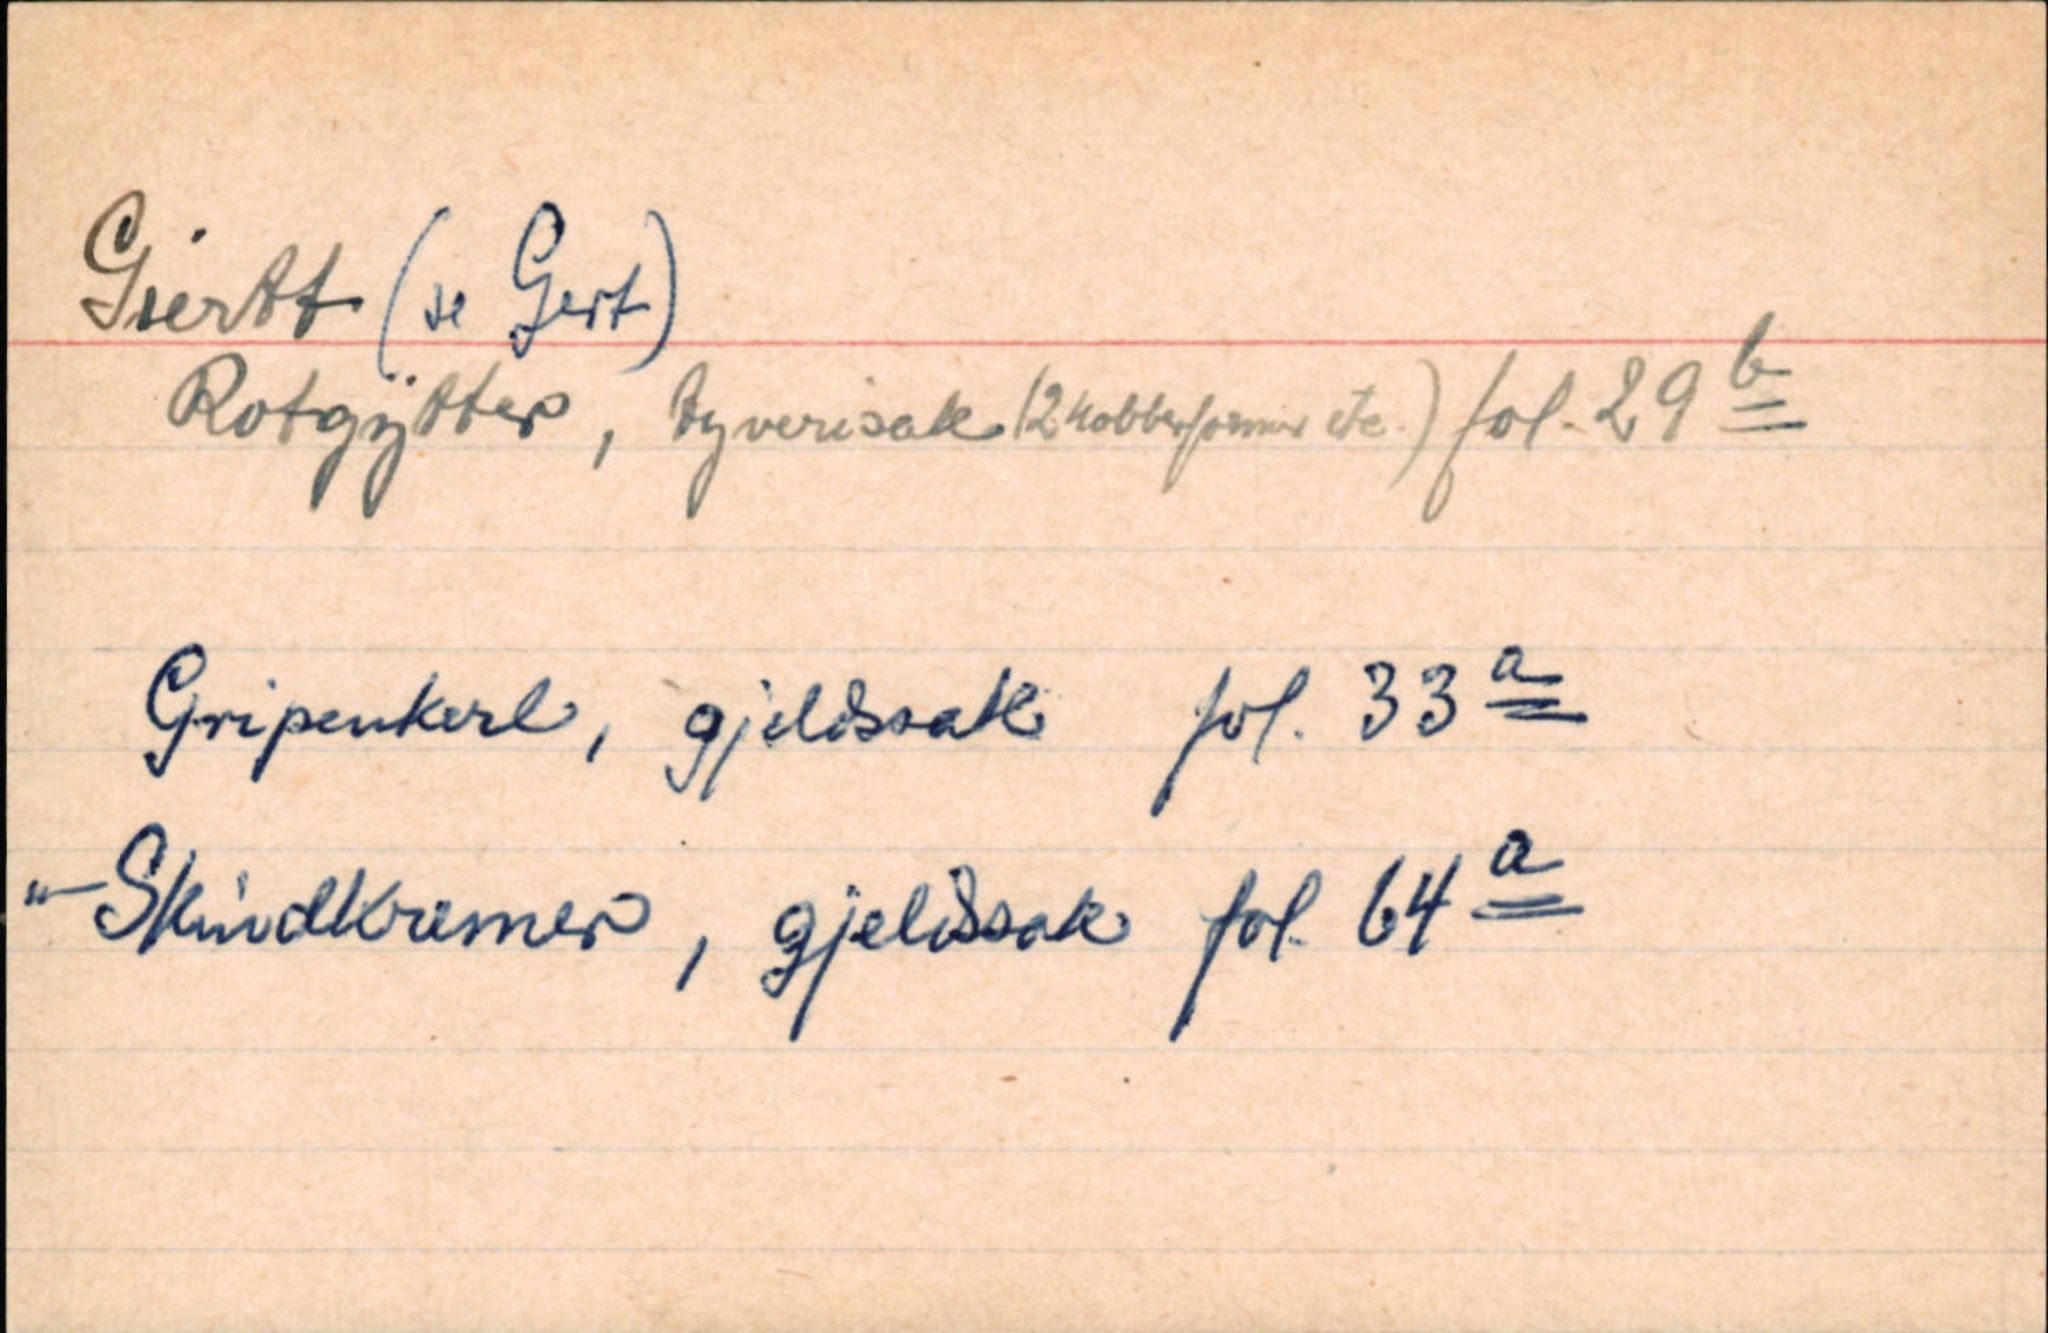 Giertt (se Gert)
Rotgÿtter, tyverisak (2 kobberformer etc.) fol. 29 b
Gripenkerl, gjeldssak fol. 33 a
"– Skindkremer, gjeldssak fol. 64 a